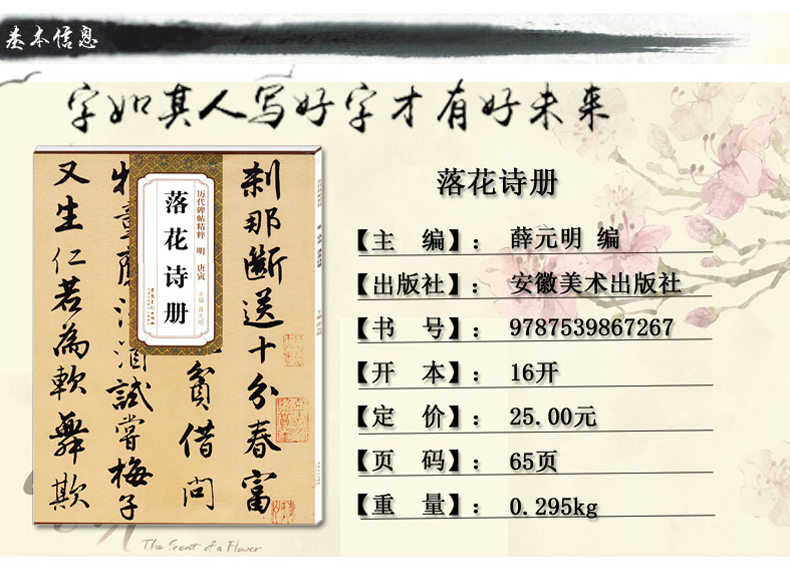 基本信息
字如其人写好字才有好未来
刹那断送十分春富
贫借问
试尝梅子
又生仁若為軟舞欺
历代碑帖精粹 明 唐寅
落花诗册
主编 薛元明
落花诗册
【主 编】: 薛元明 编
【出版社】: 安徽美术出版社
【书 号】: 9787539867267
【开 本】: 16开
【定 价】: 25.00元
【页 码】: 65页
【重 量】: 0.295kg
The Scent of a Flower